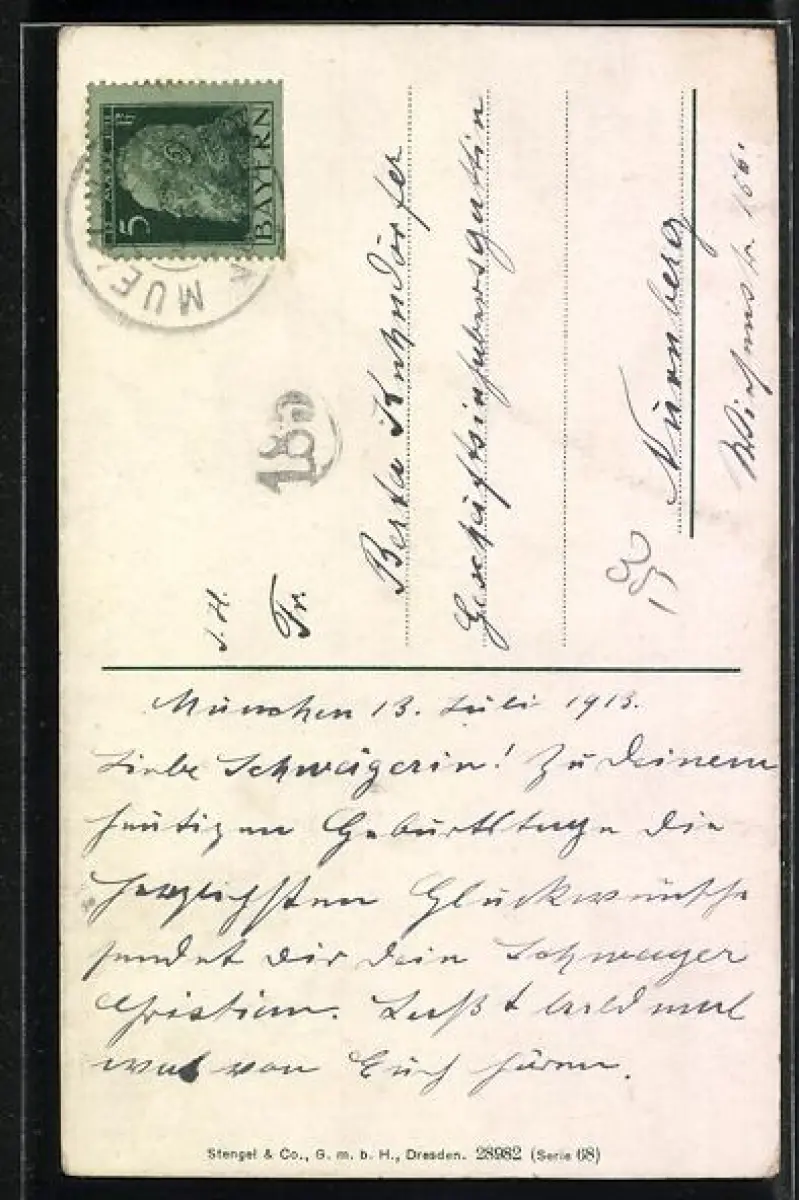 BAYERN
5
MUE
18
S. H.
Fr.
Berta
Geschäftsinhabersgattin
Nürnberg
166.
München 13. Juli 1913.
Liebe Schwägerin! Zu Deinem
heutigen Geburtstage die
herzlichsten Glückwünsche
sendet dir dein Schwager
Christian. Laßt bald mal
was von Euch hören.
Stengel & Co., G. m. b. H., Dresden. 28982 (Serie 68)